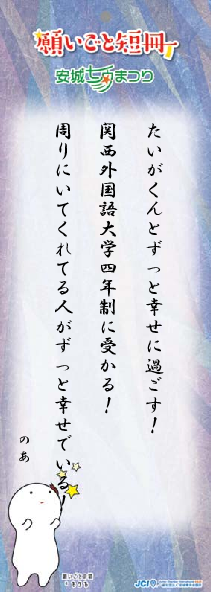 願いごと短冊
安城七夕まつり
たいがくんとずっと幸せに過ごす！
関西外国語大学四年制に受かる！
周りにいてくれてる人がずっと幸せでいる！
のあ
JCI